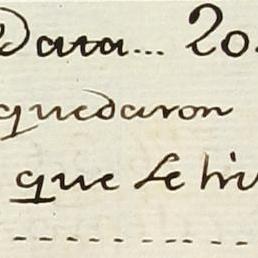 Data... 20.
quedaron
que se hi